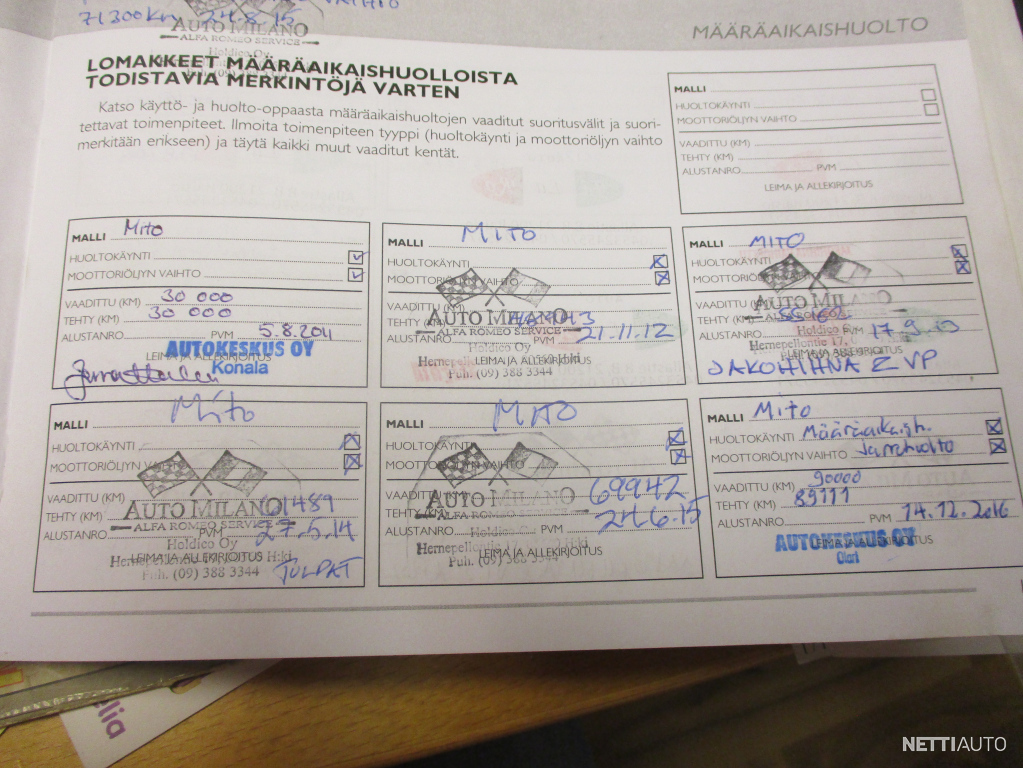 71300km 24.8.15
AUTO MILANO
ALFA ROMEO SERVICE
Holdico Oy
MÄÄRÄAIKAISHUOLTO
LOMAKKEET MÄÄRÄAIKAISHUOLLOISTA
TODISTAVIA MERKINTÖJÄ VARTEN
Katso käyttö- ja huolto-oppaasta määräaikaishuoltojen vaaditut suoritusvälit ja suori-
tettavat toimenpiteet. Ilmoita toimenpiteen tyyppi (huoltokäynti ja moottoriöljyn vaihto
merkitään erikseen) ja täytä kaikki muut vaaditut kentät.
MALLI
HUOLTOKÄYNTI
MOOTTORIÖLJYN VAIHTO
VAADITTU (KM)
TEHTY (KM)
ALUSTANRO PVM
LEIMA JA ALLEKIRJOITUS
MALLI Mito
HUOLTOKÄYNTI
MOOTTORIÖLJYN VAIHTO
VAADITTU (KM) 30 000
TEHTY (KM) 30 000
ALUSTANRO PVM 5.8.2011
LEIMA JA ALLEKIRJOITUS
AUTOKESKUS OY
Konala
MALLI MITO
HUOLTOKÄYNTI
MOOTTORIÖLJYN VAIHTO
VAADITTU (KM)
AUTO MILANO
TEHTY (KM)
ALFA ROMEO SERVICE
ALUSTANRO PVM 21.11.12
Holdico Oy
LEIMA JA ALLEKIRJOITUS
Puh. (09) 388 3344
MALLI MITO
HUOLTOKÄYNTI
MOOTTORIÖLJYN VAIHTO
VAADITTU (KM)
AUTO MILANO
TEHTY (KM)
ALUSTANRO PVM 17.9.13
Holdico
Hernepellontie 17,
LEIMA JA ALLEKIRJOITUS
JAKOHIHNA & VP
MALLI Mito
HUOLTOKÄYNTI
MOOTTORIÖLJYN VAIHTO
VAADITTU (KM)
AUTO MILANO
TEHTY (KM) 61489
ALFA ROMEO SERVICE
ALUSTANRO PVM 27.5.14
Holdico Oy
LEIMA JA ALLEKIRJOITUS
Puh. (09) 388 3344
TULPAT
MALLI MITO
HUOLTOKÄYNTI
MOOTTORIÖLJYN VAIHTO
VAADITTU (KM) 69942
AUTO MILANO
TEHTY (KM)
ALFA ROMEO SERVICE
ALUSTANRO PVM 24.6.15
Holdico Oy
Hernepellontie
LEIMA JA ALLEKIRJOITUS
Puh. (09) 388 3344
MALLI Mito
HUOLTOKÄYNTI Määräaikaish.
MOOTTORIÖLJYN VAIHTO Jarruhuolto
VAADITTU (KM) 90000
TEHTY (KM) 89111
ALUSTANRO PVM 14.12.2016
AUTOKESKUS OY
LEIMA JA ALLEKIRJOITUS
Olari
NETTIAUTO